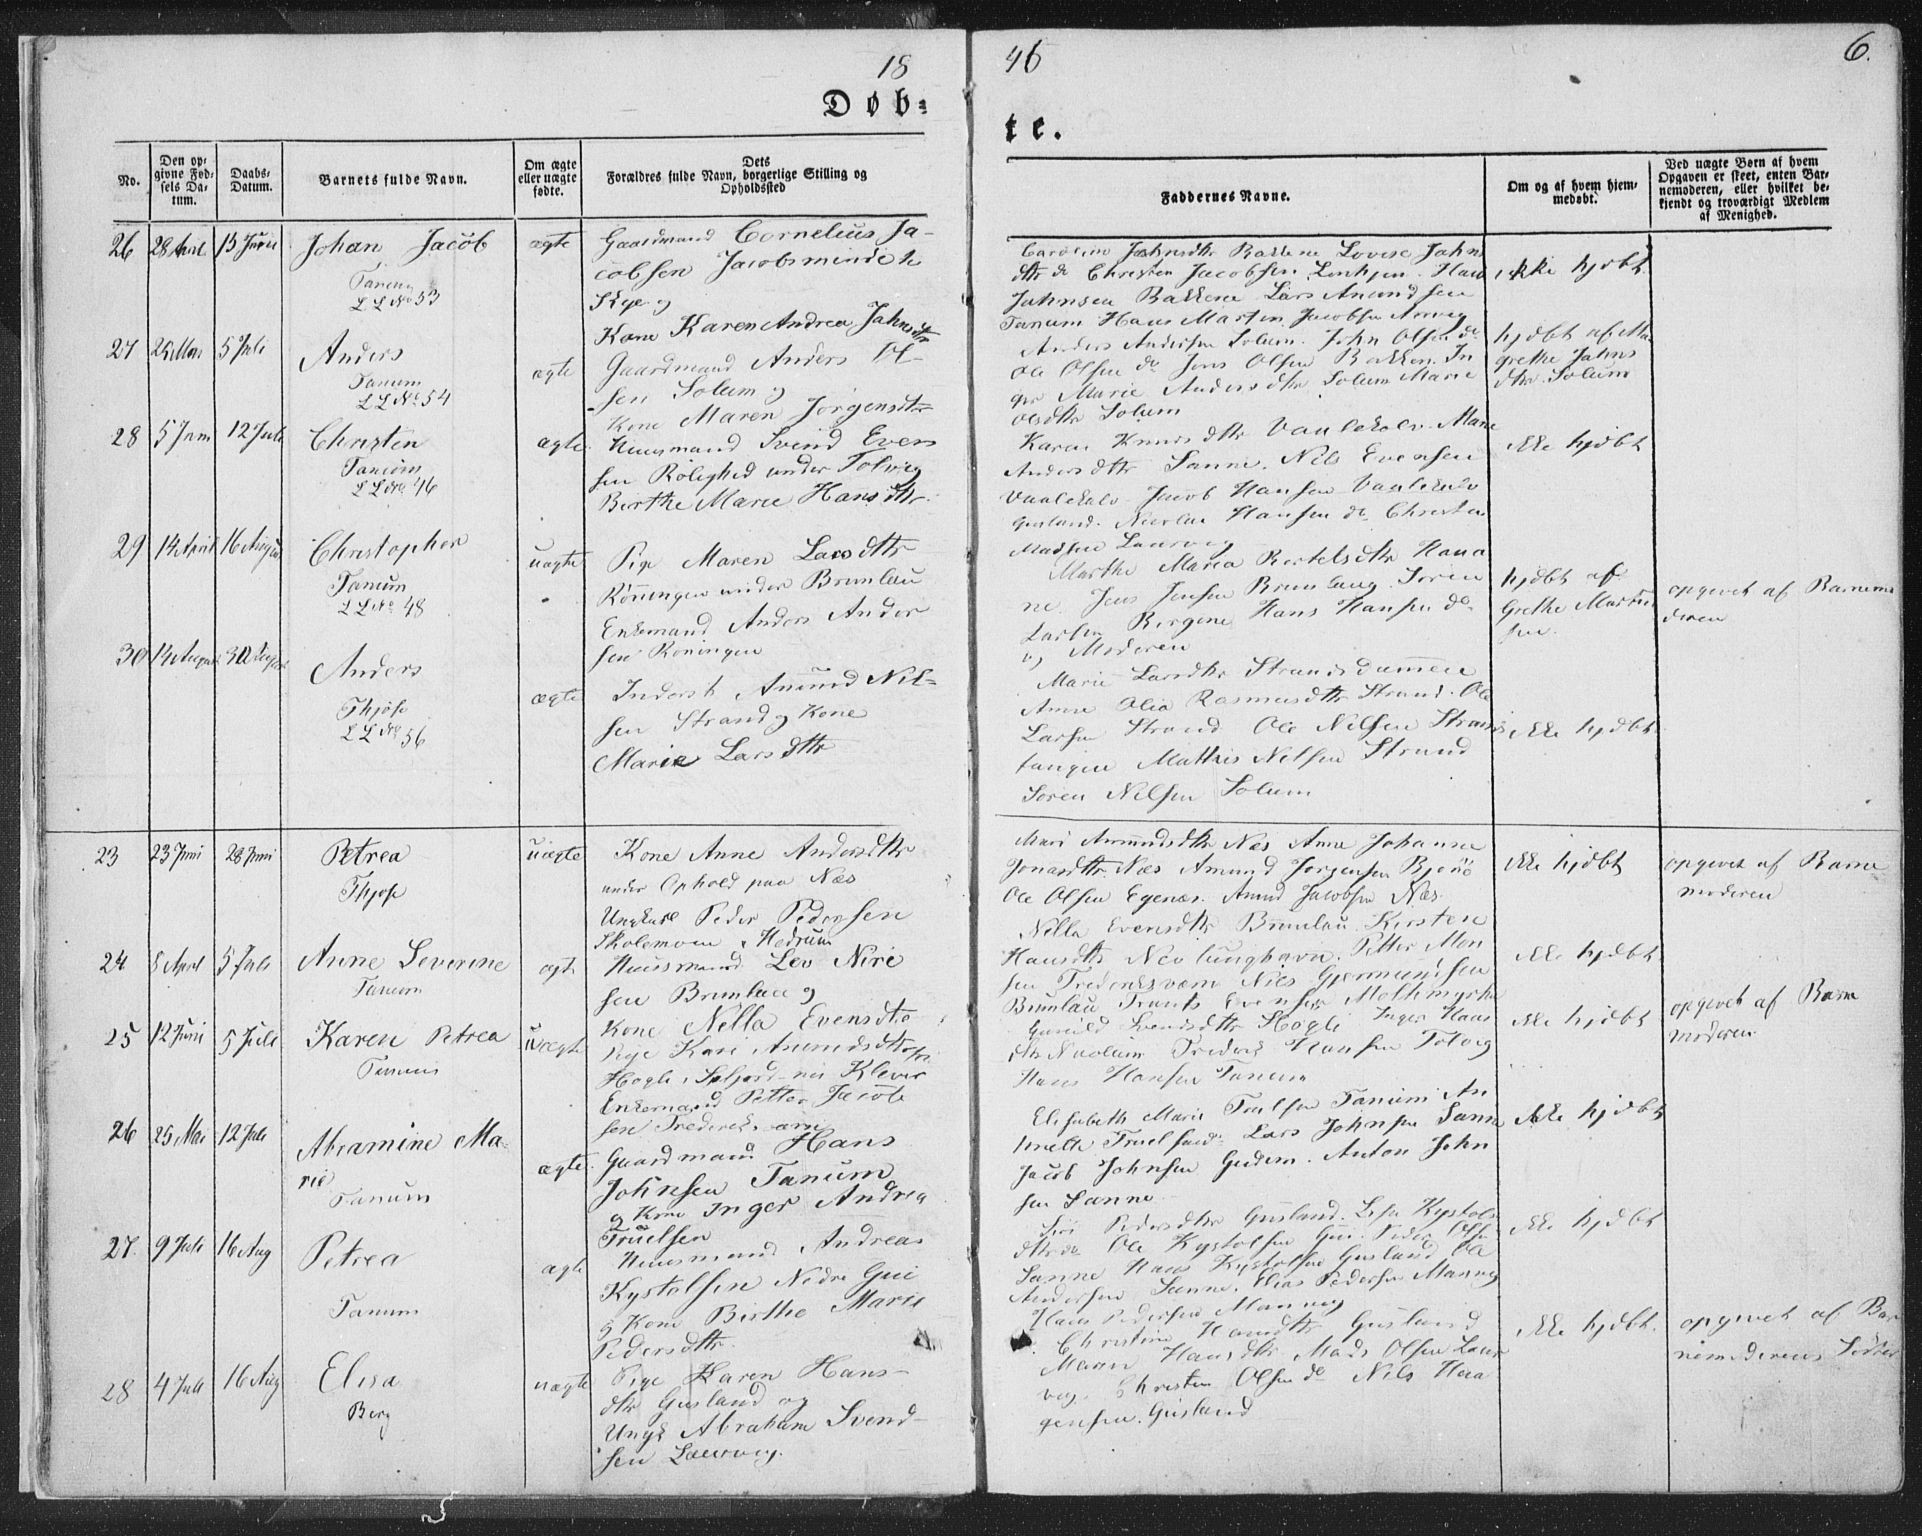 18
46
6.
Døb-
te.
No.
Den op-
givne Fød-
sels Da-
tum.
Daabs-
Datum.
Barnets fulde Navn.
Om ægte
eller uægte
fødte.
Dets
Forældres fulde Navn, borgerlige Stilling og
Opholdssted
Faddernes Navne.
Om og af hvem hjem-
medøbt.
Ved uægte Børn af hvem
Opgaven er skeet, enten Bar-
nemoderen, eller hvilket be-
kjendt og troværdigt Medlem
af Menighed.
26
Johan Jacob
L L No 53
ægte
Gaardmand Cornelius Ja-
cobsen Jacobsminde
Kone Karen Andrea Jahnsdtr
Christen Jacobsen
Jahnsen Bakkene Lars Amundsen
Tanum Hans Martin Jacobsen
ikke hjdbt
27
25 Mai
5 Juli
Anders
Tanum
L L No 54
ægte
Gaardmand Anders Ol-
sen Solum og
Kone Maren Jørgensdtr
Anders Andersen Solum. John Olsen do
Ole Olsen do Jens Olsen Bakken. In
ger Marie Andersdtr Solum Marie
Olsdtr Solum
hjdbt af Ma
grethe Jahns
dtr. Solum
28
5 Juni
12 Juli
Christen
Tanum
L L No 46
ægte
Huusmand Svend Even
sen Rolighed under Tolvig
Berthe Marie Hansdtr.
Karen Knudsdtr Vaalekolv. Marie
Andersdtr Sanne. Nils Evensen
Vaalekolv Jacob Hansen Vaalekolv
Gusland. Nicolai Hansen do Christen
Madsen Laurvig
ikke hjdbt
29
14 April
16 August
Christopher
Tanum
L L No 48
uægte
Pige Maren Larsdtr
Rönningen under Brunlau
Enkemand Anders Ander
sen Röningen
Marthe Maria Bertelsdtr Hava
ne Jens Jensen Brunlaug Søren
Larsen Bergene Hans Hansen do
og Moderen
hjdbt af
Grethe Martin
sen.
opgivet af Barnemo
deren
30
14 August
30 August
Anders
Thjøse
L L No 56
ægte
Inderst Amund Nil-
sen Strand og Kone
Marie Larsdtr
Marie Larsdtr Strandsdammen
Anne Olia Rasmusdtr Strand. Ole
Larsen Strand Ole Nilsen Strands
tangen Mathis Nilsen Strand
Søren Nilsen Solum
ikke hjdbt
23
23 Juni
28 Juni
Petrea
Thjøse
uægte
Kone Anne Andersdtr
under Ophold paa Næs
Ungkarl Peder Pedersen
Skolemoen i Hedrum
Mari Amundsdtr Næs Anne Johanne
Jonasdtr. Næs Amund Jørgensen Bjønö
Ole Olsen Egenæs. Amund Jacobsen Næs
ikke hjdbt
opgivet af Barne
moderen
24
8 April
5 Juli
Anne Severine
Tanum
ægte
Huusmand Lev Niri
sen Brunlau og
Kone Nella Evensdtr
Nella Evensdtr Brunlau. Kirsten
Hansdtr Nevlunghavn. Petter Mon
sen Frederiksværn Nils Gjermundsen
Brunlau Trunts Evensen Moltemyrhe
ikke hjdbt
25
12 Juni
5 Juli
Karen Petrea
Tanum
uægte
Pige Kari Amundsdtr
Hogli i Seljord Klever
Enkemand Petter Jacob
sen Frederiksværn
Gunild Svendsdtr Hogli Inger Hans
dtr Nuolum Frederik Hansen Tolvig
Hans Hansen Tanum
ikke hjdbt
opgivet af Barne
moderen
26
25 Mai
12 Juli
Abramine Ma-
rie
Tanum
ægte.
Gaardmand Hans
Johnsen Tanum
og Kone Inger Andrea
Truelsen
Elisabeth Marie Trulsen Tanum An
Truelsen do Lars Johnsen Sanne
Jacob Johnsen Gudem. Anton John
sen Sanne
ikke hjdbt
27.
9 Juli
16 Aug
Petrea
Tanum
ægte
Huusmand Andreas
Kystolsen Nedre Gui
og Kone Birthe Marie
Pedersdtr.
Siri Pedersdtr Gusland. Lise Kystols
dtr do Ole Kystolsen Gui. Peder Olsen
Sanne Hans Kystolsen Gusland Ole
Andersen Sanne. Elias Pedersen Manvig
Hans Pedersen Manvig
ikke hjdbt
28
4 Juli
16 Aug
Elisa
Berg
uægte
Pige Karen Hans-
dtr Gusland og
Ungk Abraham Svend-
sen Laurvig.
Christine Hansdtr Gusland
Maren Hansdtr Mads Olsen Laur
vig. Christen Olsen do Nils Haa
gensen. Gusland
ikke hjdbt.
opgivet af Bar
nemoderens